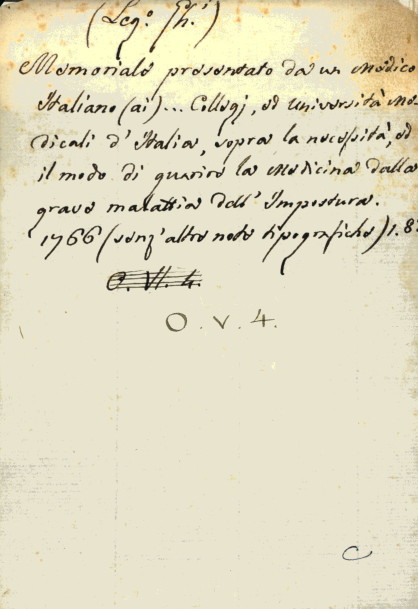 (Leg.° Gh.i)
Memoriale presentato da un Medico
Italiano (ai) ... Collegj, ed Università Me
dicali d'Italia, sopra la necessità, ed
il modo di guarire la Medicina dalla
grave malattia dell'Impostura.
1766 (senz'altre note tipografiche) 1.8°
O. VI. 4.
O. V. 4.
C